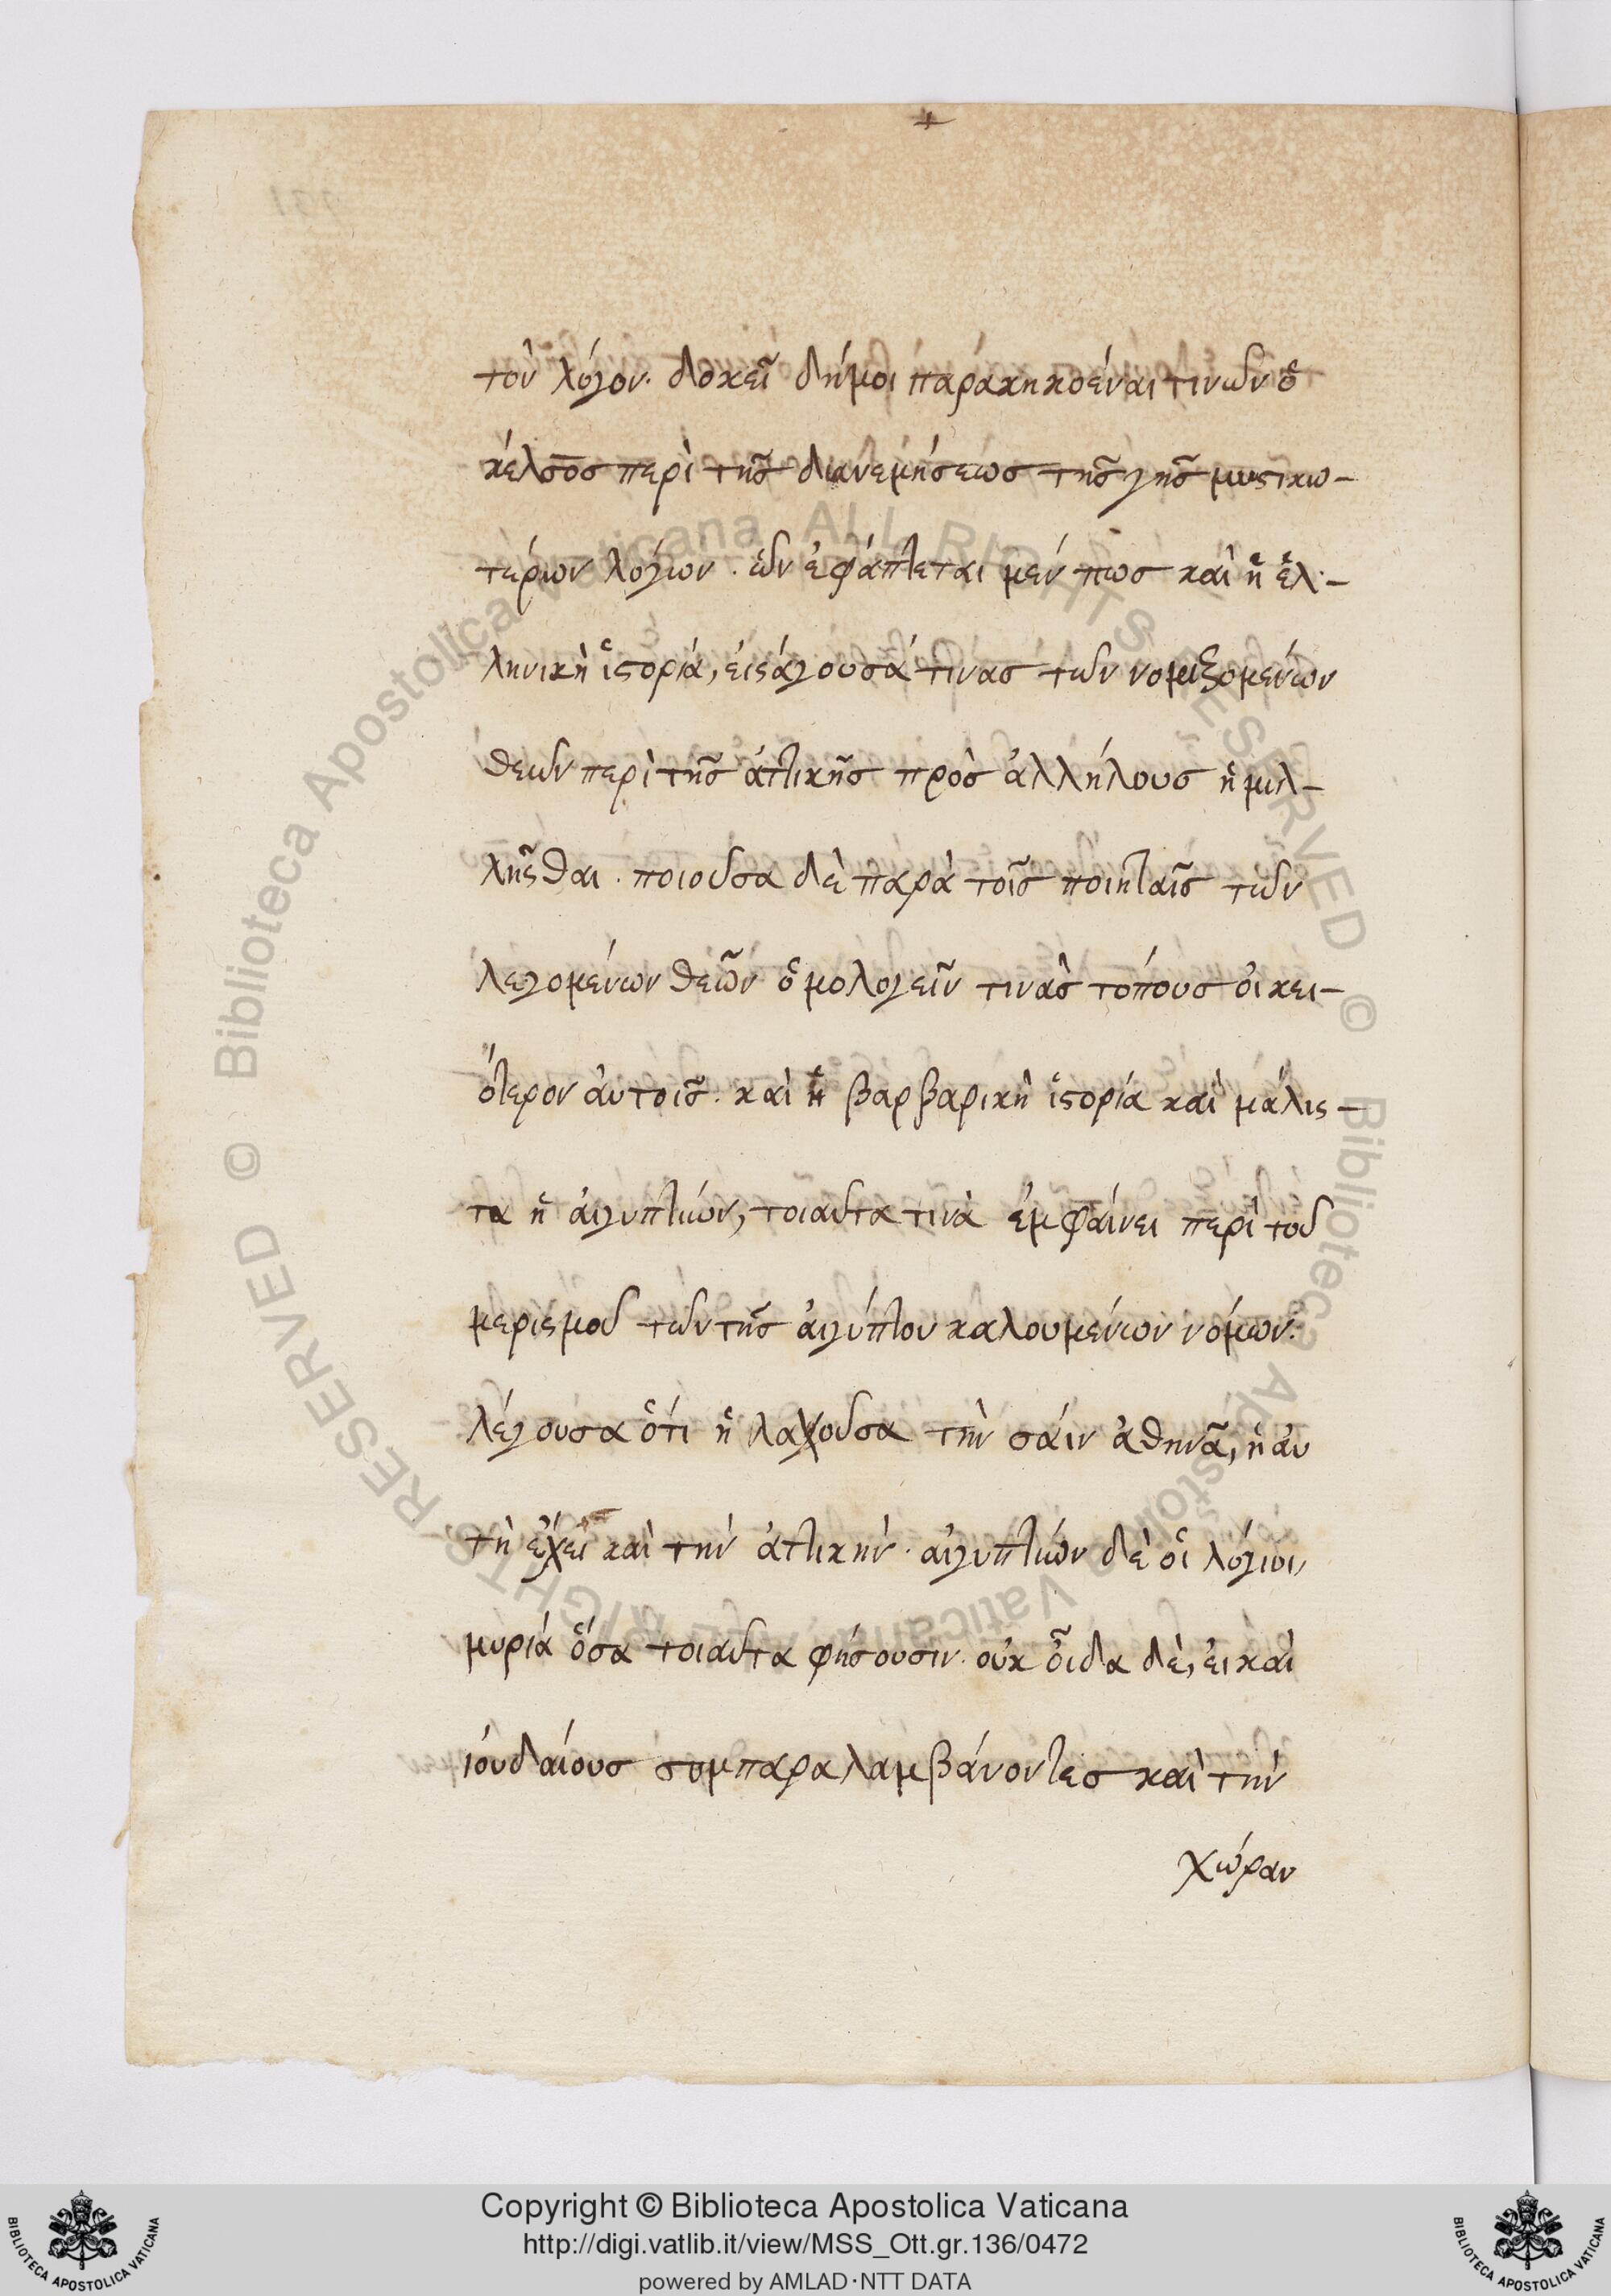 τὸν λόγον. δοκεῖ δήμοι παρακηκοέναι τινῶν ὁ
κέλσος περὶ τῆς διανεμήσεως τῆς γῆς μυστικω-
τέρων λόγων. ὧν ἐφάπτεται μέν πως καὶ ἡ ἑλ-
ληνικὴ ἱστορία, εἰσάγουσά τινας τῶν νομιζομένων
θεῶν περὶ τῆς ἀττικῆς πρὸς ἀλλήλους ἡμιλ-
λῆσθαι. ποιοῦσα δὲ παρὰ τοῖς ποιηταῖς τῶν
λεγομένων θεῶν ὁμολογεῖν τινὰς τόπους οἰκει-
ότερον ἀυτοῖς. καὶ ἡ βαρβαρικὴ ἱστορία καὶ μάλισ-
τα ἡ ἀιγυπτίων, τοιαῦτα τινὰ ἐμφαίνει περὶ τοῦ
μερισμοῦ τῶν τῆς ἀιγύπτου καλουμένων νόμων.
λέγουσα ὅτι ἡ λαχοῦσα τὴν σάϊν ἀθηνᾶ, ἡ ἀυ
τὴ ἔχει καὶ τὴν ἀττικήν. αἰγυπτίων δὲ οἱ λόγιοι,
μυρία ὅσα τοιαῦτα φήσουσιν. οὐκ οἶδα δὲ, εἰ καὶ
ἰουδαίους συμπαραλαμβάνοντες καὶ τὴν
χώραν
Copyright © Biblioteca Apostolica Vaticana
http://digi.vatlib.it/view/MSS_Ott.gr.136/0472
powered by AMLAD·NTT DATA